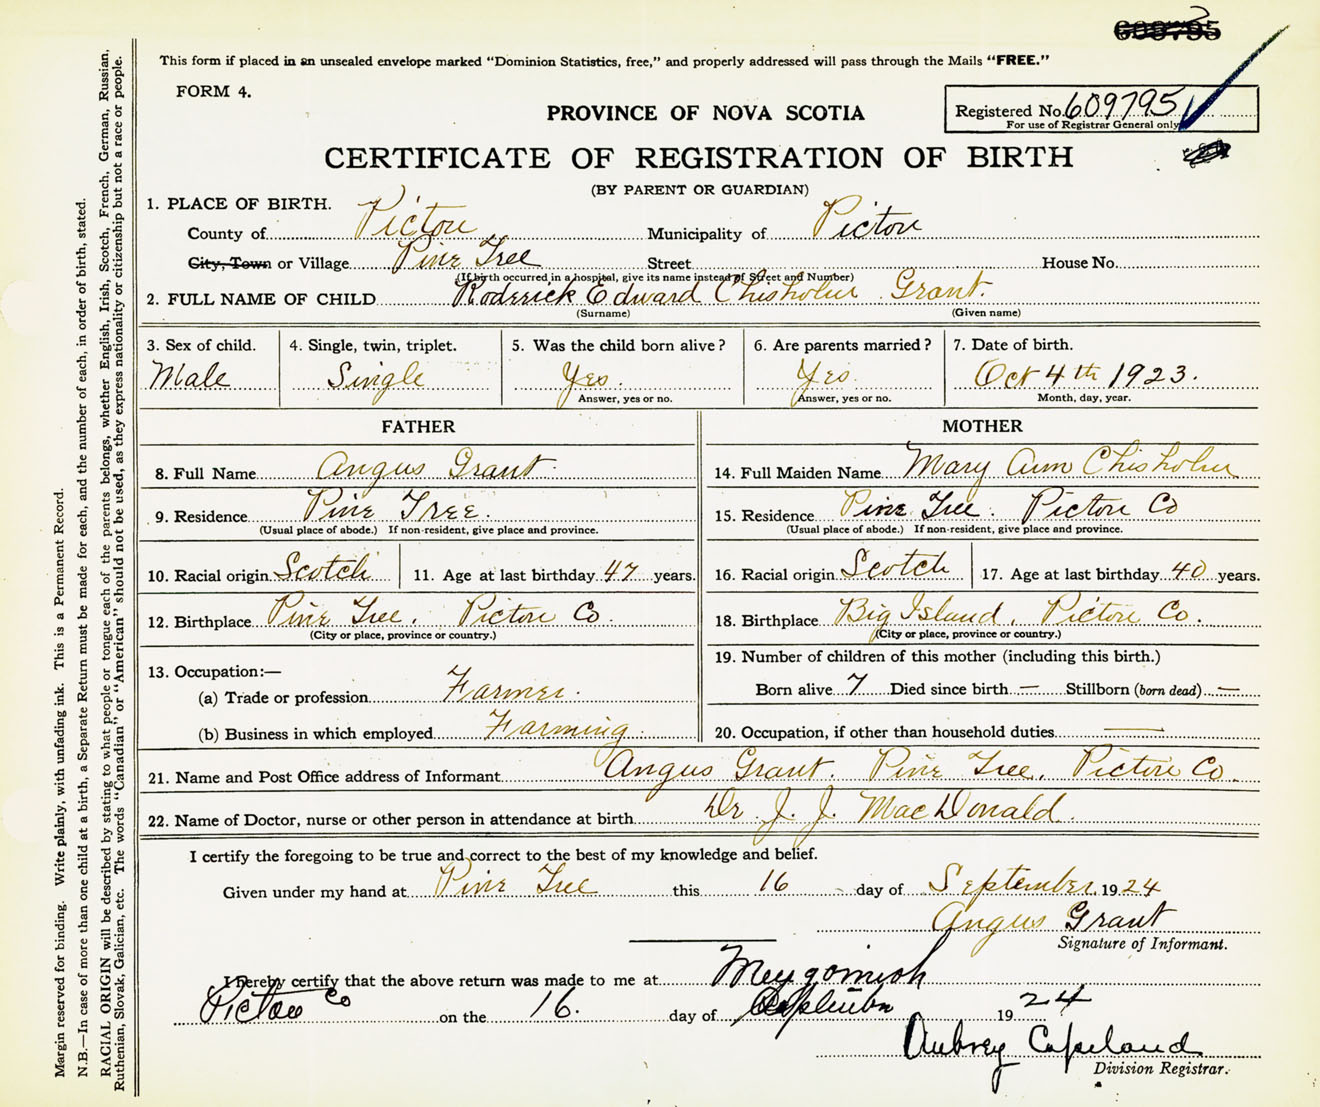 609795
This form if placed in an unsealed envelope marked "Dominion Statistics, free," and properly addressed will pass through the Mails "FREE."
FORM 4.
Registered No. 609795
For use of Registrar General only
PROVINCE OF NOVA SCOTIA
CERTIFICATE OF REGISTRATION OF BIRTH
(BY PARENT OR GUARDIAN)
1. PLACE OF BIRTH.
County of Pictou Municipality of Pictou
City, Town or Village Pine Tree Street House No.
(If birth occurred in a hospital, give its name instead of Street and Number)
2. FULL NAME OF CHILD Roderick Edward Chisholm Grant.
(Surname) (Given name)
3. Sex of child. 4. Single, twin, triplet. 5. Was the child born alive? 6. Are parents married? 7. Date of birth.
Male Single Yes. Yes. Oct 4th 1923.
Answer, yes or no. Answer, yes or no. Month, day, year.
FATHER
8. Full Name Angus Grant
9. Residence Pine Tree.
(Usual place of abode.) If non-resident, give place and province.
10. Racial origin Scotch 11. Age at last birthday 47 years.
12. Birthplace Pine Tree, Pictou Co.
(City or place, province or country.)
13. Occupation:—
(a) Trade or profession Farmer.
(b) Business in which employed Farming.
MOTHER
14. Full Maiden Name Mary Ann Chisholm
15. Residence Pine Tree. Pictou Co
(Usual place of abode.) If non-resident, give place and province.
16. Racial origin Scotch 17. Age at last birthday 40 years.
18. Birthplace Big Island, Pictou Co.
(City or place, province or country.)
19. Number of children of this mother (including this birth.)
Born alive 7 Died since birth — Stillborn (born dead) —
20. Occupation, if other than household duties —
21. Name and Post Office address of Informant Angus Grant. Pine Tree, Pictou Co.
22. Name of Doctor, nurse or other person in attendance at birth Dr. J. J. MacDonald.
I certify the foregoing to be true and correct to the best of my knowledge and belief.
Given under my hand at Pine Tree this 16 day of September 1924
Angus Grant
Signature of Informant.
I hereby certify that the above return was made to me at Merigomish
Pictou Co on the 16. day of September 1924
Aubrey Copeland
Division Registrar.
Margin reserved for binding. Write plainly, with unfading ink. This is a Permanent Record.
N.B.—In case of more than one child at a birth, a Separate Return must be made for each, and the number of each, in order of birth, stated.
RACIAL ORIGIN will be described by stating to what people or tongue each of the parents belongs, whether English, Irish, Scotch, French, German, Russian,
Ruthenian, Slovak, Galician, etc. The words "Canadian" or "American" should not be used, as they express nationality or citizenship but not a race or people.